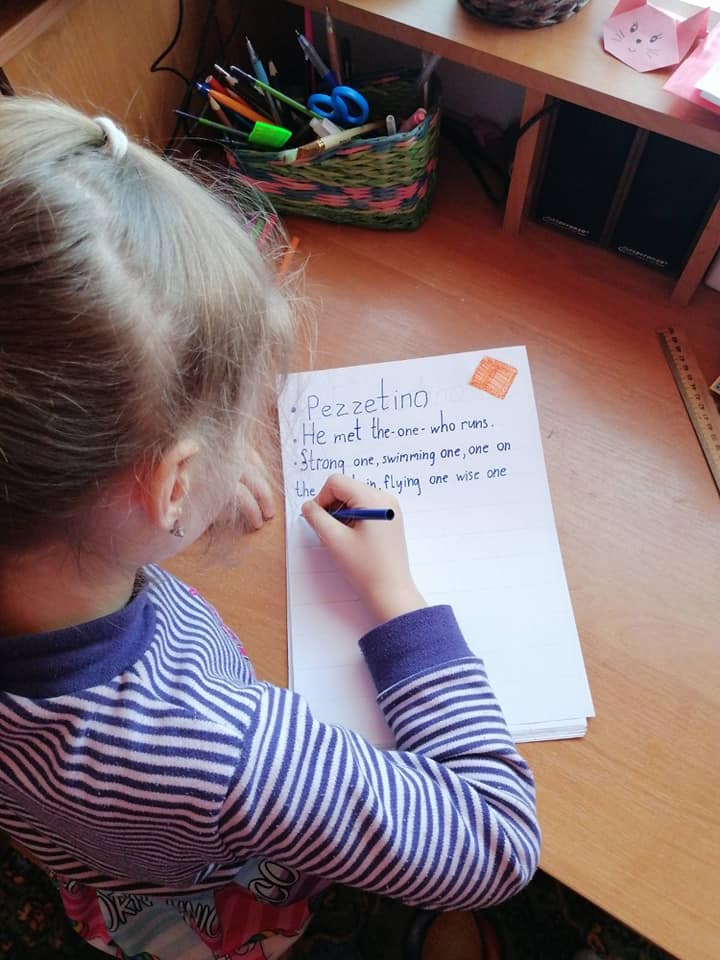 • Pezzetino
• He met the-one-who runs.
• Strong one, swimming one, one on
the in, flying one wise one